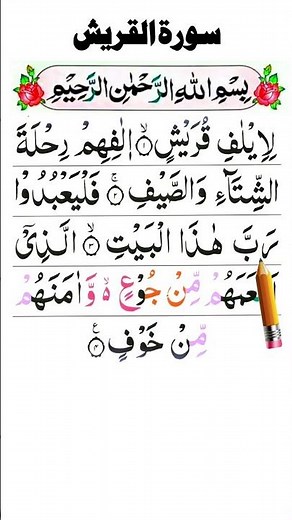 سورة القريش
بِسْمِ اللهِ الرَّحْمٰنِ الرَّحِيْمِ
لِاِيْلٰفِ قُرَيْشٍ ۙ﴿۱﴾ اٖلٰفِهِمْ رِحْلَةَ
الشِّتَآءِ وَالصَّيْفِ ۚ﴿۲﴾ فَلْيَعْبُدُوْا
رَبَّ هٰذَا الْبَيْتِ ۙ﴿۳﴾ الَّذِىْٓ
مِّنْ جُوْعٍ ۙ۬ وَّاٰمَنَهُمْ
مِّنْ خَوْفٍ ﴿۴﴾ ع